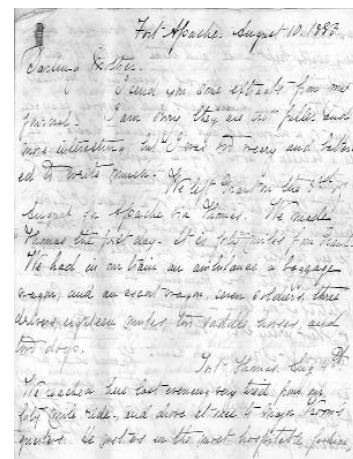 Fort Apache. August 10. 1883
Darling Mother.
I send you some extracts from my
journal. I am sorry they are not fuller and
more interesting, but I was too weary and batter
ed to write much. We left Grant on the 3rd of
August for Apache via Thomas. We made
Thomas the first day. It is forty miles from Grant.
We had in our train an ambulance a baggage
wagon, and an escort wagon, seven soldiers, three
drivers eighteen mules, two saddle horses, and
two dogs.
Fort Thomas. Aug 4th
We reached here last evening very tired from my
forty mile ride, and drove at once to Major
quarters. He met us in the most hospitable fashion,